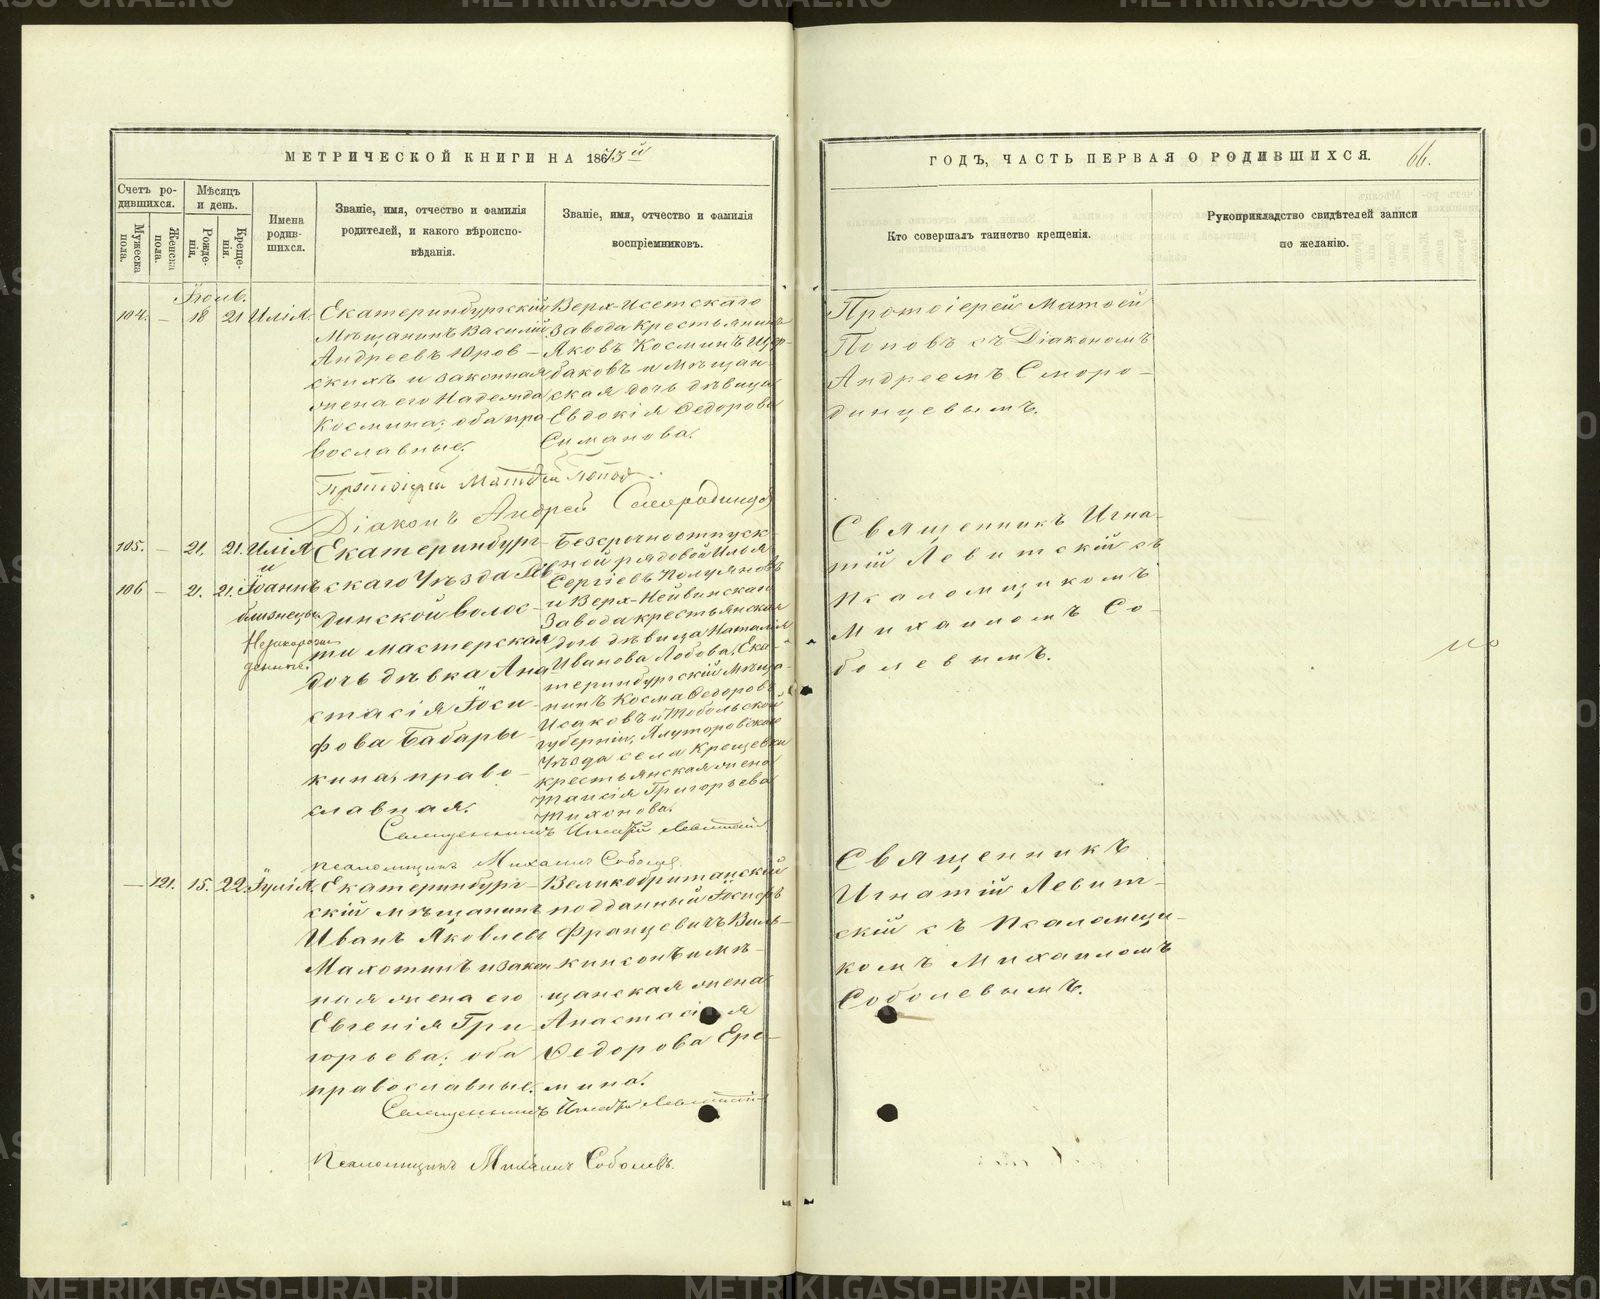 МЕТРИЧЕСКОЙ КНИГИ НА 1873й
Счетъ родившихся.
Мужеска пола.
Женска пола.
Мѣсяцъ и день.
Рожденія.
Крещенія.
Имена родившихся.
Званіе, имя, отчество и фамилія родителей, и какого вѣроисповѣданія.
Званіе, имя, отчество и фамилія воспріемниковъ.
104. — 18 21 Илія.
Екатеринбургскій
Мѣщанинъ Василій
Андреевъ Юров-
скихъ и законная
жена его Надежда
Космина; оба пра-
вославные.
Верх-Исетскаго
Завода Крестьянинъ
Яковъ Косминъ Щер-
баковъ и Мѣщан-
ская дочь дѣвица
Евдокія Ѳедорова
Симанова.
Протоіерей Матѳей Поповъ.
Діаконъ Андрей Смородинцевъ
105. — 21. 21. Илія
и
106 — 21. 21. Іоаннъ
близнецы.
Незаконорож-
денные.
Екатеринбург-
скаго Уѣзда
динской волос-
ти мастерская
дочь дѣвка Ана-
стасія Іоси-
фова Бабары-
кина, право-
славная.
Безсрочноотпуск-
ной рядовой Илья
Сергіевъ Полуяновъ
и Верх-Нейвинскаго
Завода крестьянская
дочь дѣвица Наталія
Иванова Лобова, Ека-
теринбургскій Мѣща-
нинъ Косма Ѳедоровъ
Исаковъ и Тобольской
губерніи, Ялуторовскаго
Уѣзда села
крестьянская жена
Таисія Григорьева
Тихонова.
Священникъ Игнатій Левитскій
Псаломщикъ Михаилъ Соболевъ.
— 121. 15. 22. Іулія.
Екатеринбург-
скій мѣщанинъ
Иванъ Яковлевъ
Махотинъ и закон-
ная жена его
Евгенія Гри-
горьева; оба
православные.
Великобританскій
подданный Іосифъ
Францевичъ Виль-
кинсонъ и мѣ-
щанская жена
Анастасія
Ѳедорова Ере-
мина.
Священникъ Игнатій Левитскій
Псаломщикъ Михаилъ Соболевъ.
ГОДЪ, ЧАСТЬ ПЕРВАЯ О РОДИВШИХСЯ. 66.
Кто совершалъ таинство крещенія.
Рукоприкладство свидѣтелей записи по желанію.
Протоіерей Матѳей
Поповъ съ Діакономъ
Андреемъ Сморо-
динцевымъ.
Священникъ Игна-
тій Левитскій съ
Псаломщикомъ
Михаиломъ Со-
болевымъ.
Священникъ
Игнатій Левит-
скій съ Псаломщи-
комъ Михаиломъ
Соболевымъ.
METRIKI.GASO-URAL.RU